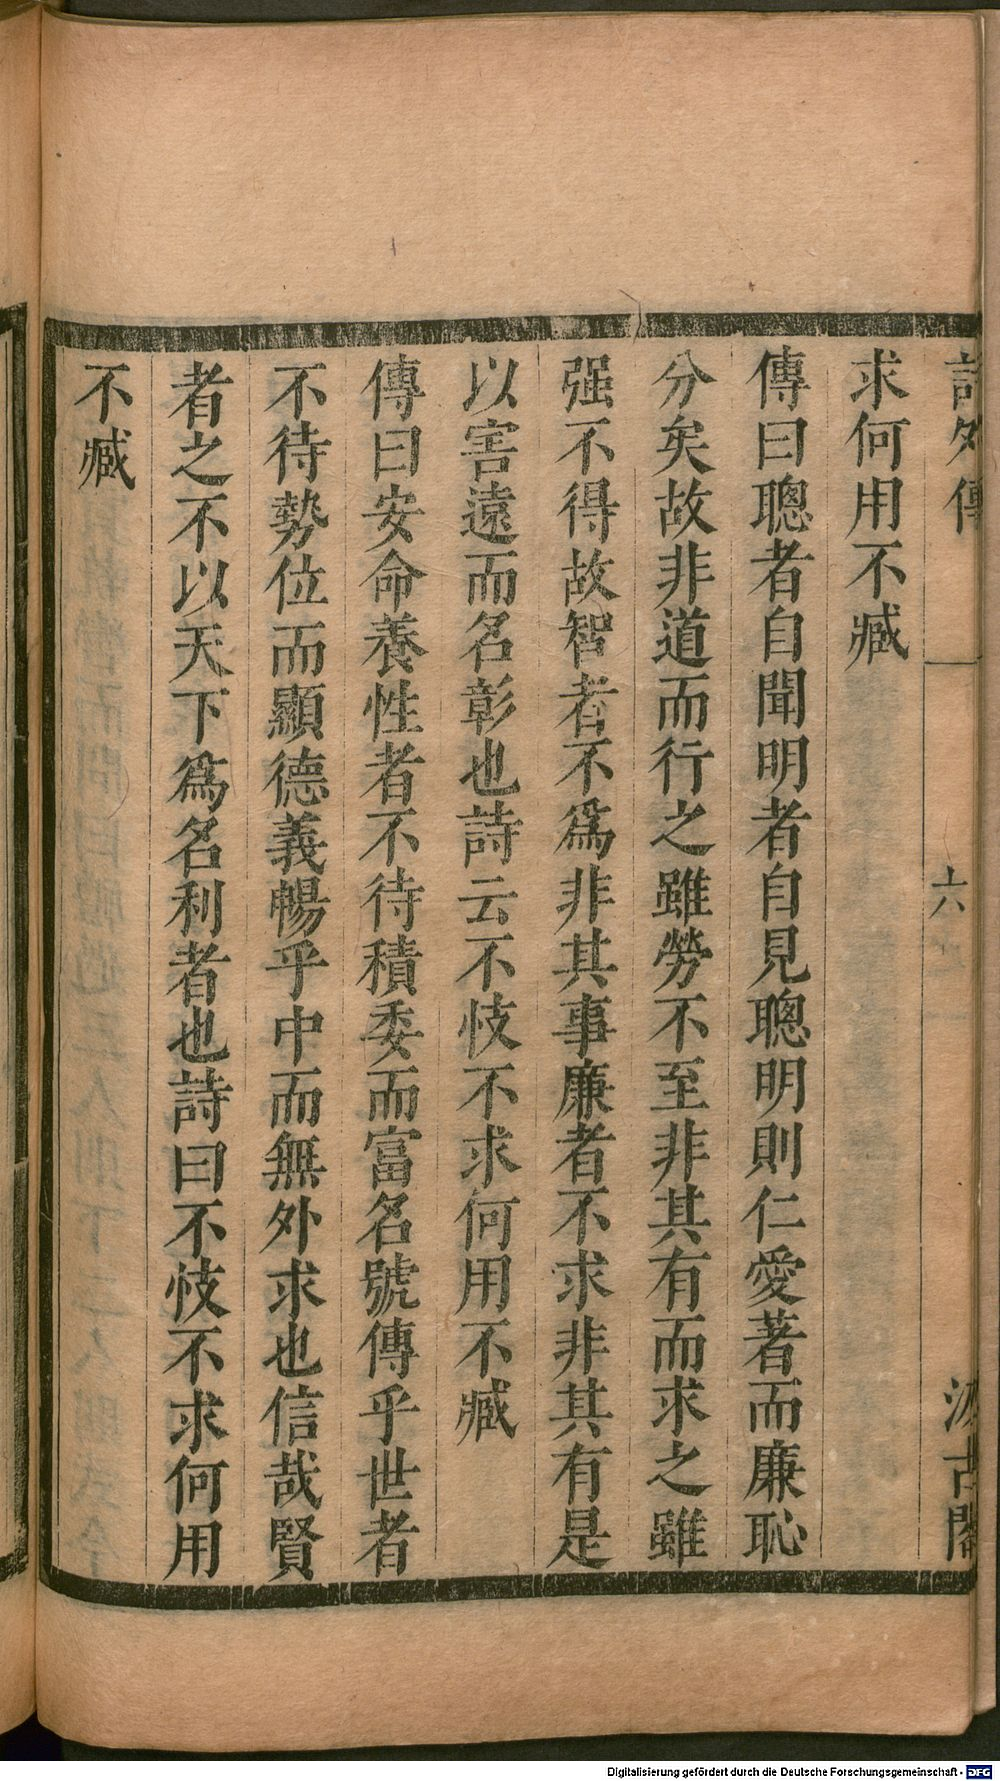 詩外傳 六 汲古閣
求何用不臧
傳曰聰者自聞明者自見聰明則仁愛著而廉恥
分矣故非道而行之雖勞不至非其有而求之雖
强不得故智者不爲非其事廉者不求非其有是
以害遠而名彰也詩云不忮不求何用不臧
傳曰安命養性者不待積委而富名號傳乎世者
不待勢位而顯德義暢乎中而無外求也信哉賢
者之不以天下爲名利者也詩曰不忮不求何用
不臧
Digitalisierung gefördert durch die Deutsche Forschungsgemeinschaft - DFG